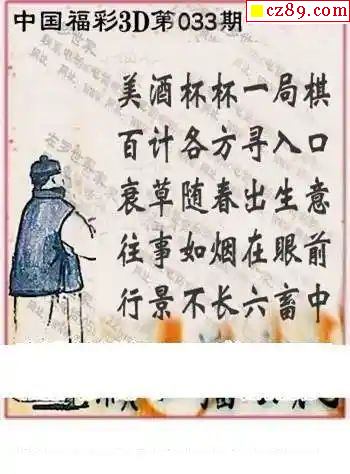 中国福彩3D第033期
cz89.com
美酒杯杯一局棋
百计各方寻入口
衰草随春出生意
往事如烟在眼前
行景不长六畜中